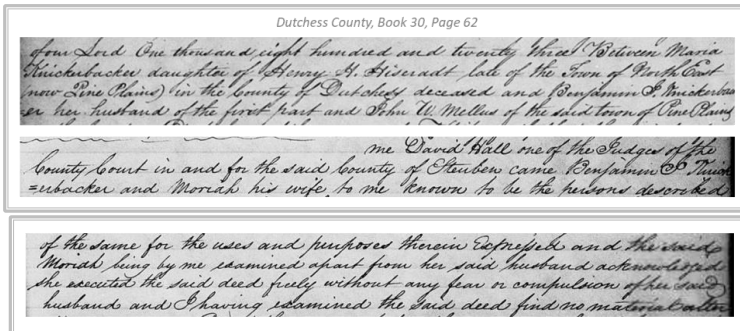 Dutchess County, Book 30, Page 62
of our Lord One thousand eight hundred and twenty three Between Maria
Knickerbacker daughter of Henry H. Hiseradt late of the Town of North East
(now Pine Plains) in the County of Dutchess deceased and Benjamin P. Knickerback
er her husband of the first part and John W. Mellus of the said town of Pine Plains
me David Hall one of the Judges of the
County Court in and for the said County of Steuben came Benjamin P Knick
=erbacker and Moriah his wife to me known to be the persons described
of the same for the uses and purposes therein Expressed and the said
Moriah being by me examined apart from her said husband acknowledged
she executed the said deed freely without any fear or compulsion of her said
husband and I having examined the said deed find no material alter